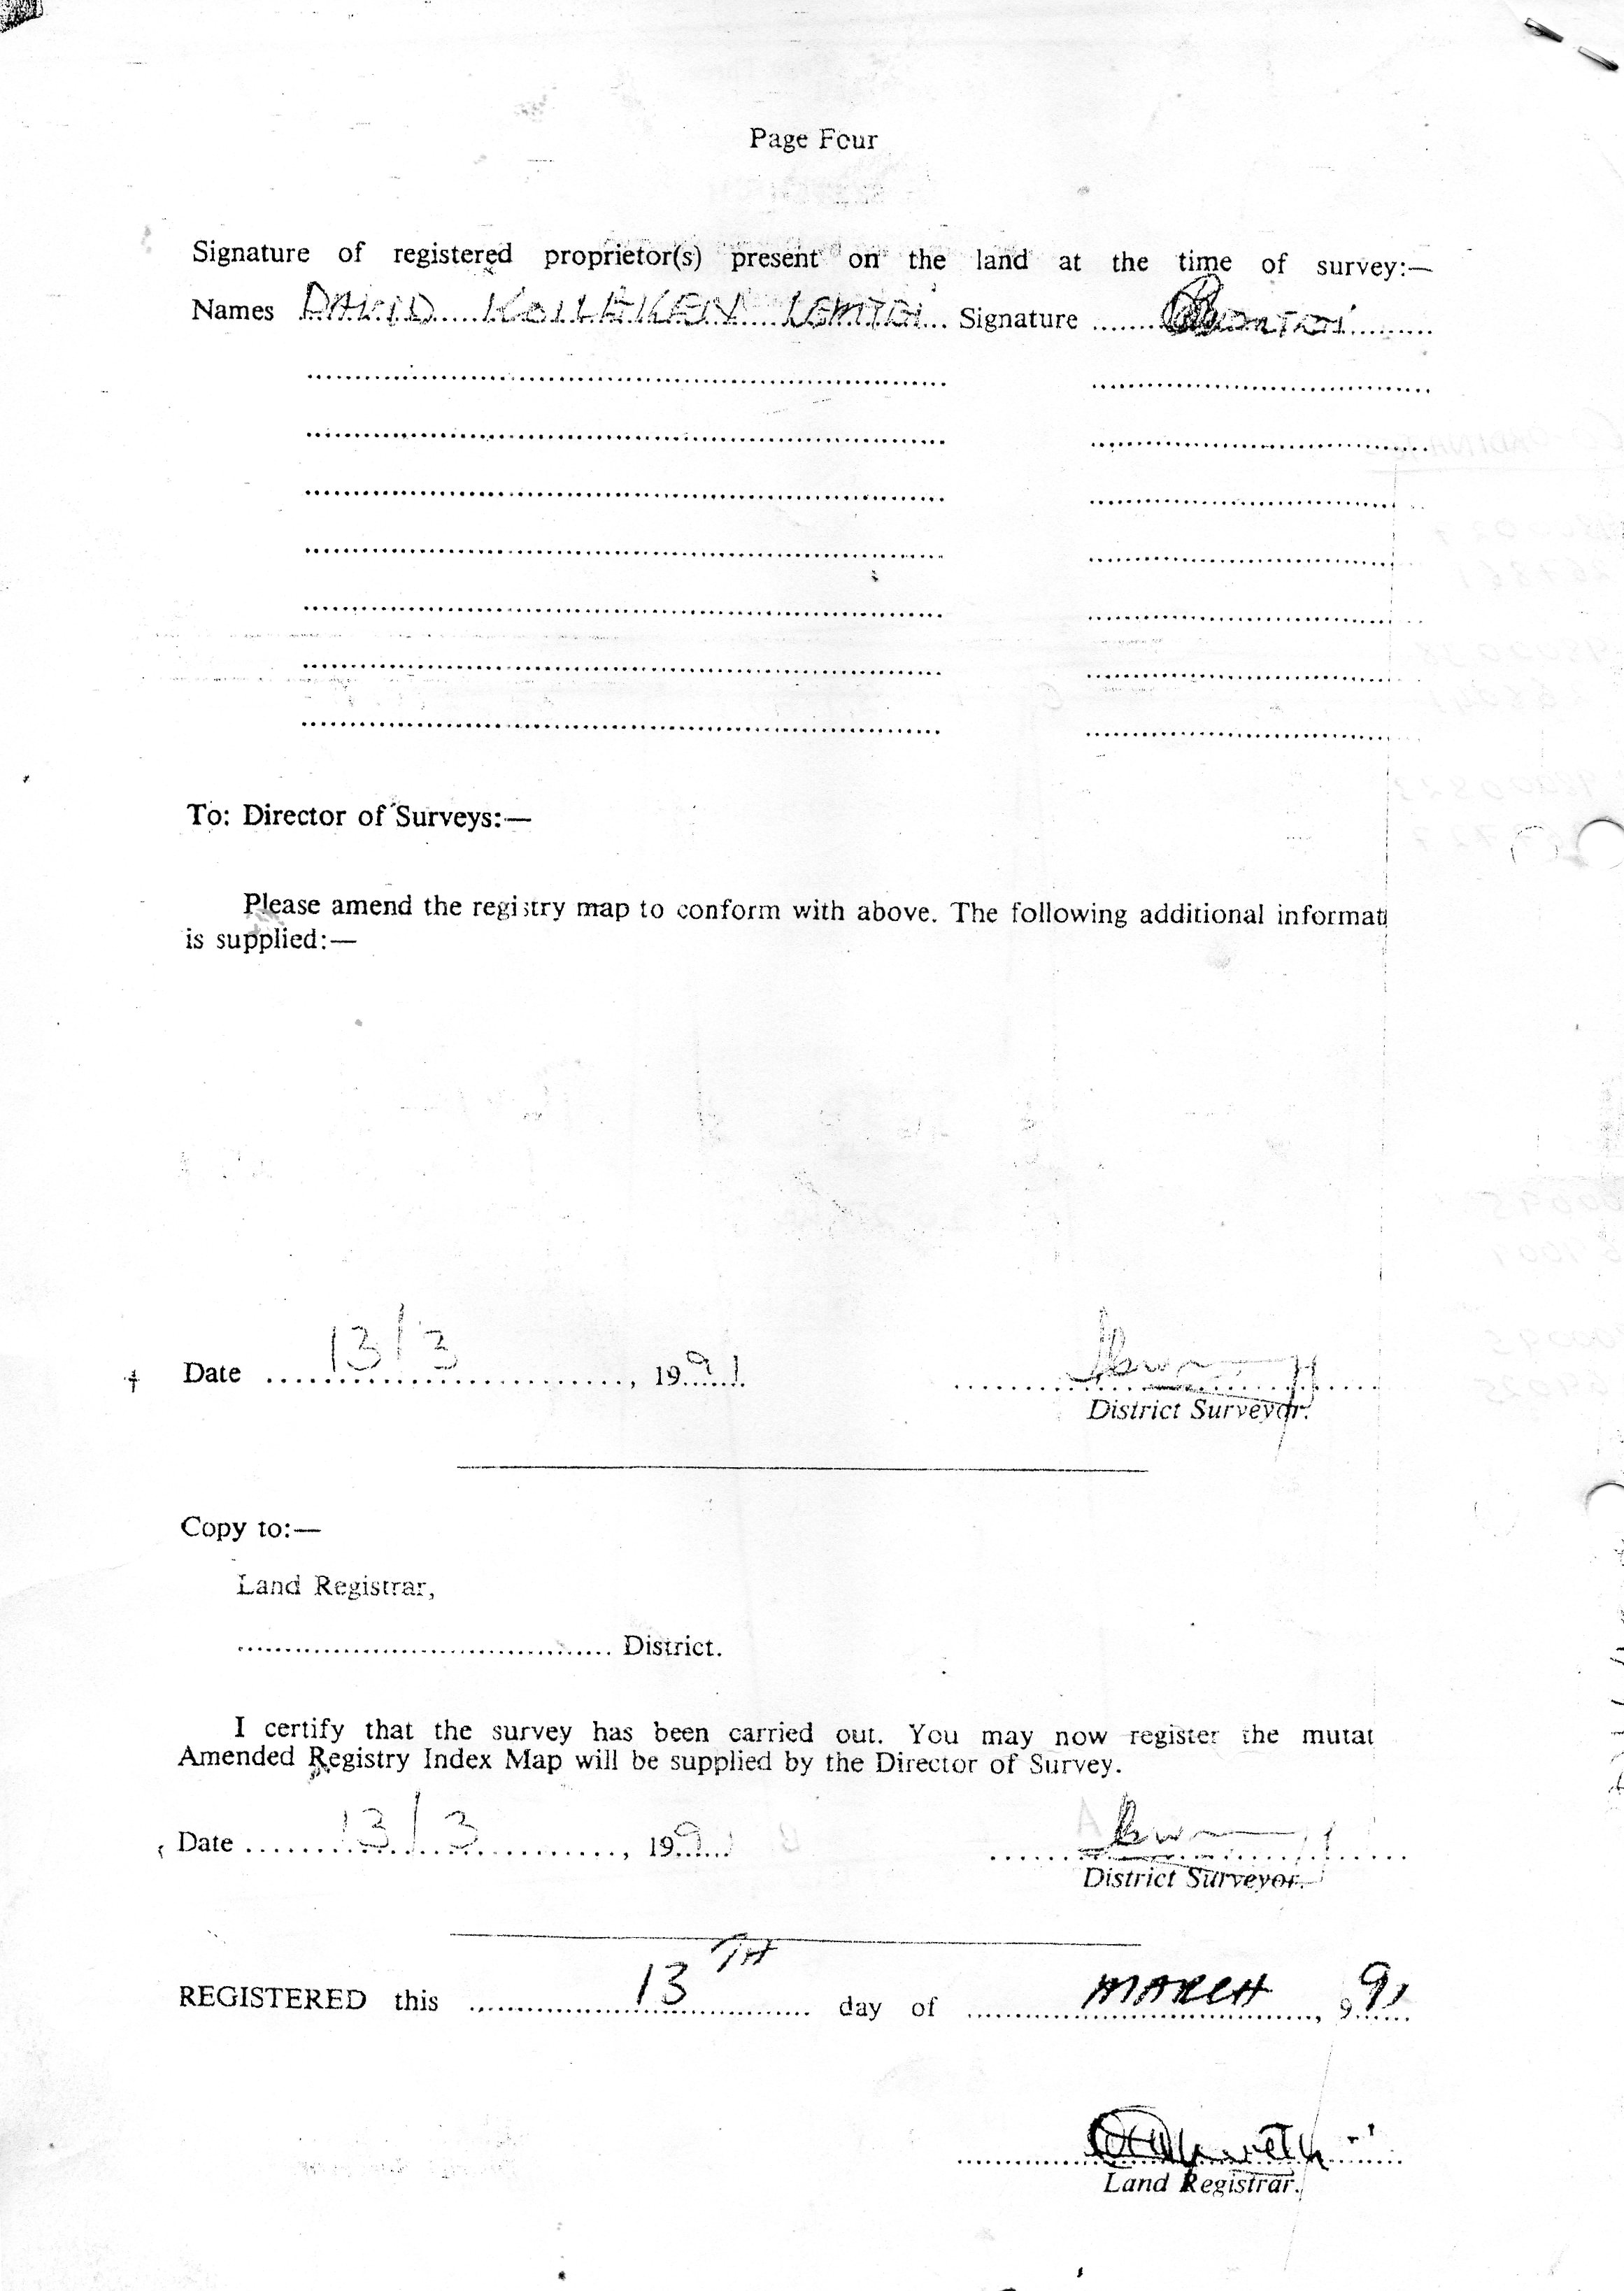 Page Four
Signature of registered proprietor(s) present on the land at the time of survey:—
Names DAVID KOILEKEN LEMTEI Signature
To: Director of Surveys:—
Please amend the registry map to conform with above. The following additional informati
is supplied:—
Date 13/3, 1991
District Surveyor.
Copy to:—
Land Registrar,
District.
I certify that the survey has been carried out. You may now register the mutat
Amended Registry Index Map will be supplied by the Director of Survey.
Date 13/3, 1991
District Surveyor.
REGISTERED this 13TH day of MARCH, 991
Land Registrar.